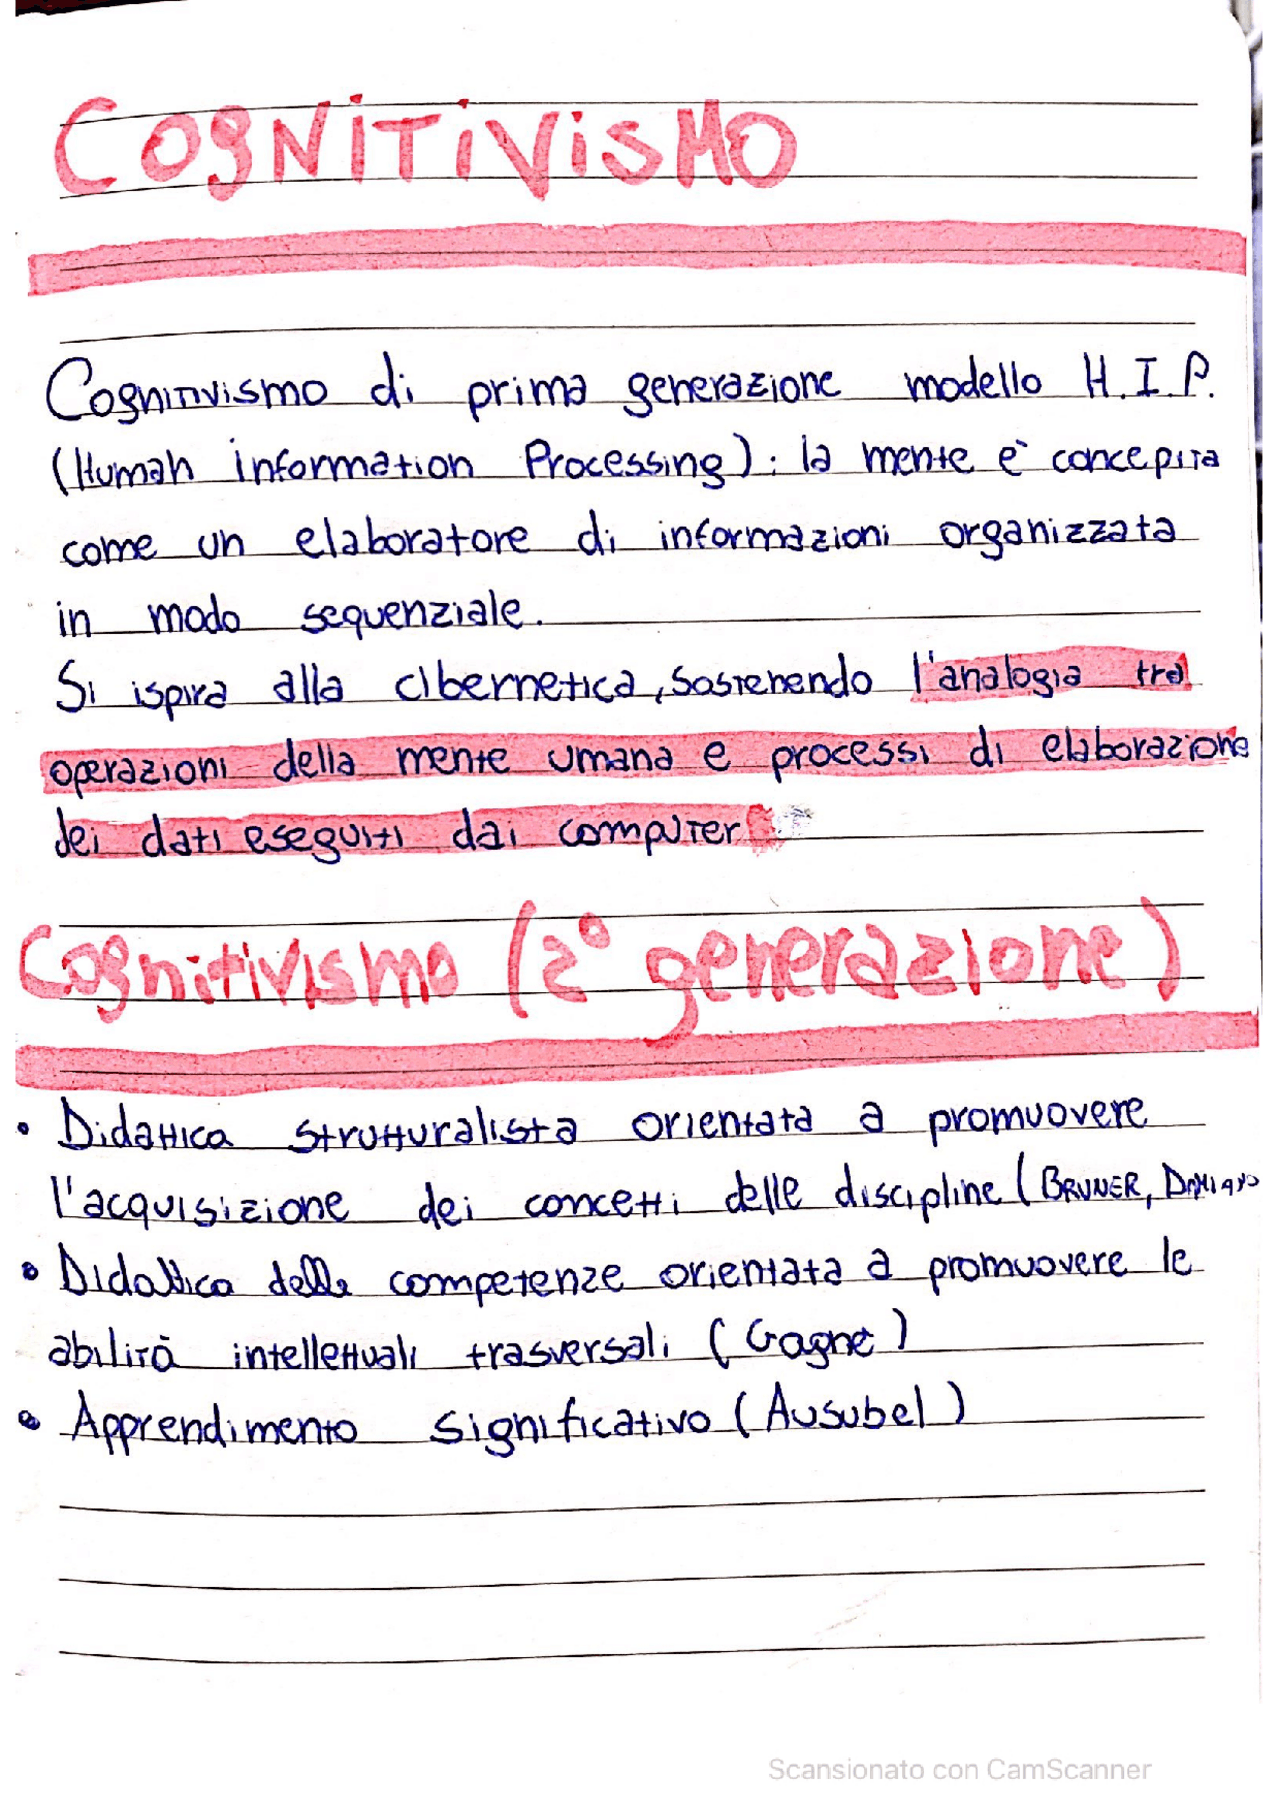 COGNITIVISMO
Cognitivismo di prima generazione modello H.I.P.
(Human information Processing): la mente è concepita
come un elaboratore di informazioni organizzata
in modo sequenziale.
Si ispira alla cibernetica, sostenendo l'analogia tra
operazioni della mente umana e processi di elaborazione
dei dati eseguiti dai computer.
Cognitivismo (2° generazione)
• Didattica strutturalista orientata a promuovere
l'acquisizione dei concetti delle discipline (BRUNER, DAMIANO
• Didattica delle competenze orientata a promuovere le
abilità intellettuali trasversali (Gagnè)
• Apprendimento significativo (Ausubel)
Scansionato con CamScanner